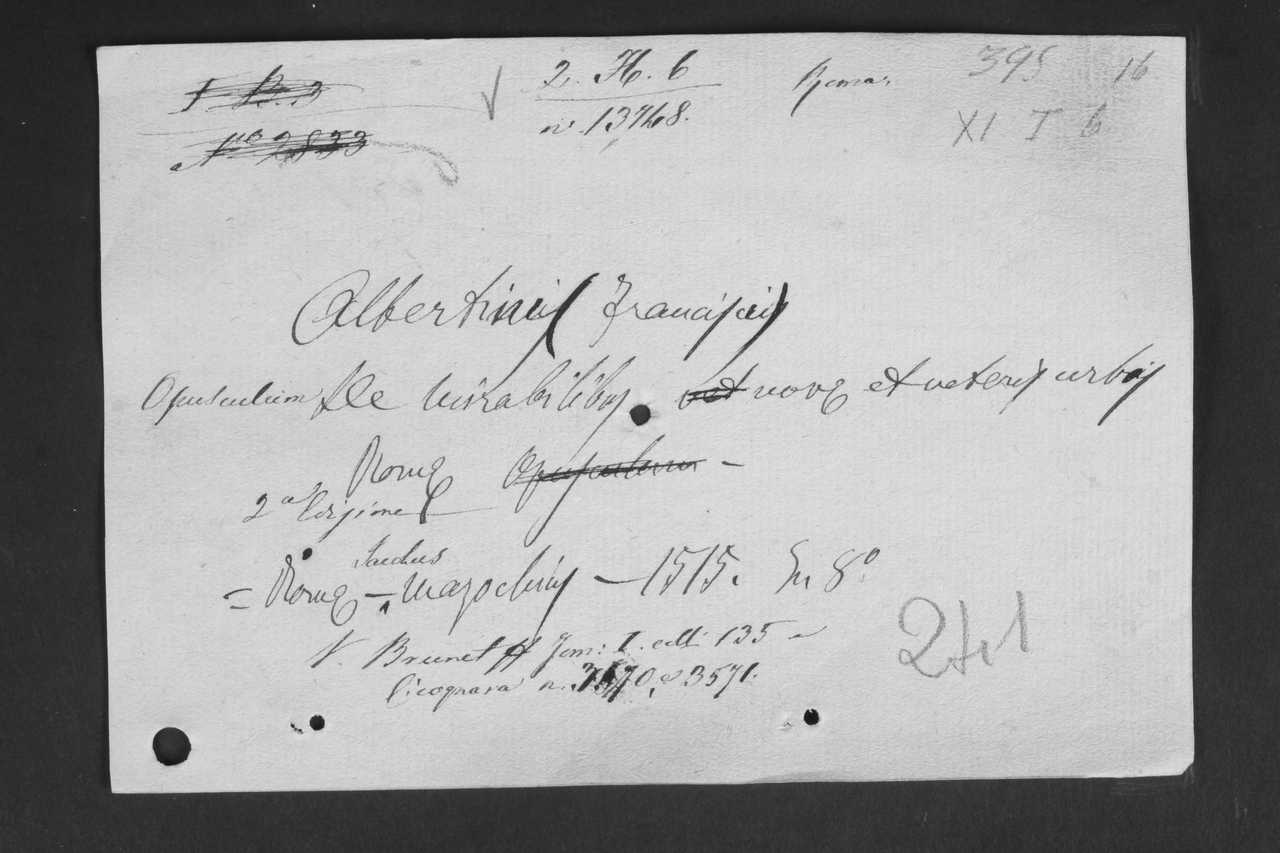 I. B. 3
No 2833
2. H. 6
no. 13748.
Roma.
395 16
XI T 6
Albertinis (Franciscis)
Opusculum De Mirabilibus novę et veteris urbis
Romę Opusculum -
2a
= Romę - Jacobus Mazochius - 1515. In 8º.
V. Brunet Tom: I. coll: 135 -
Cicognara n. 3570 e 3571.
241